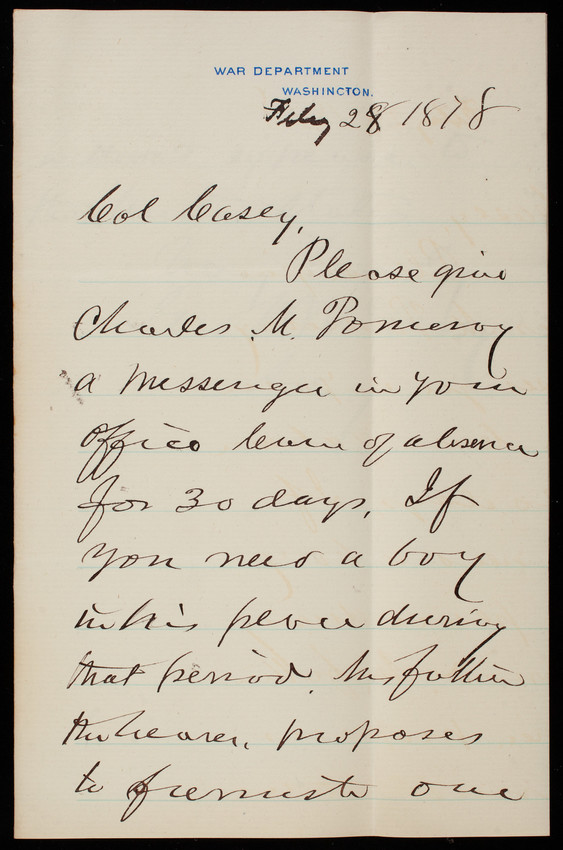 WAR DEPARTMENT
WASHINGTON.
Feby 28 1878
Col Casey,
Please give
Charles M. Pomeroy
a Messenger in your
office leave of absence
for 30 days. If
you need a boy
in his place during
that period, his father
the bearer, proposes
to furnish one